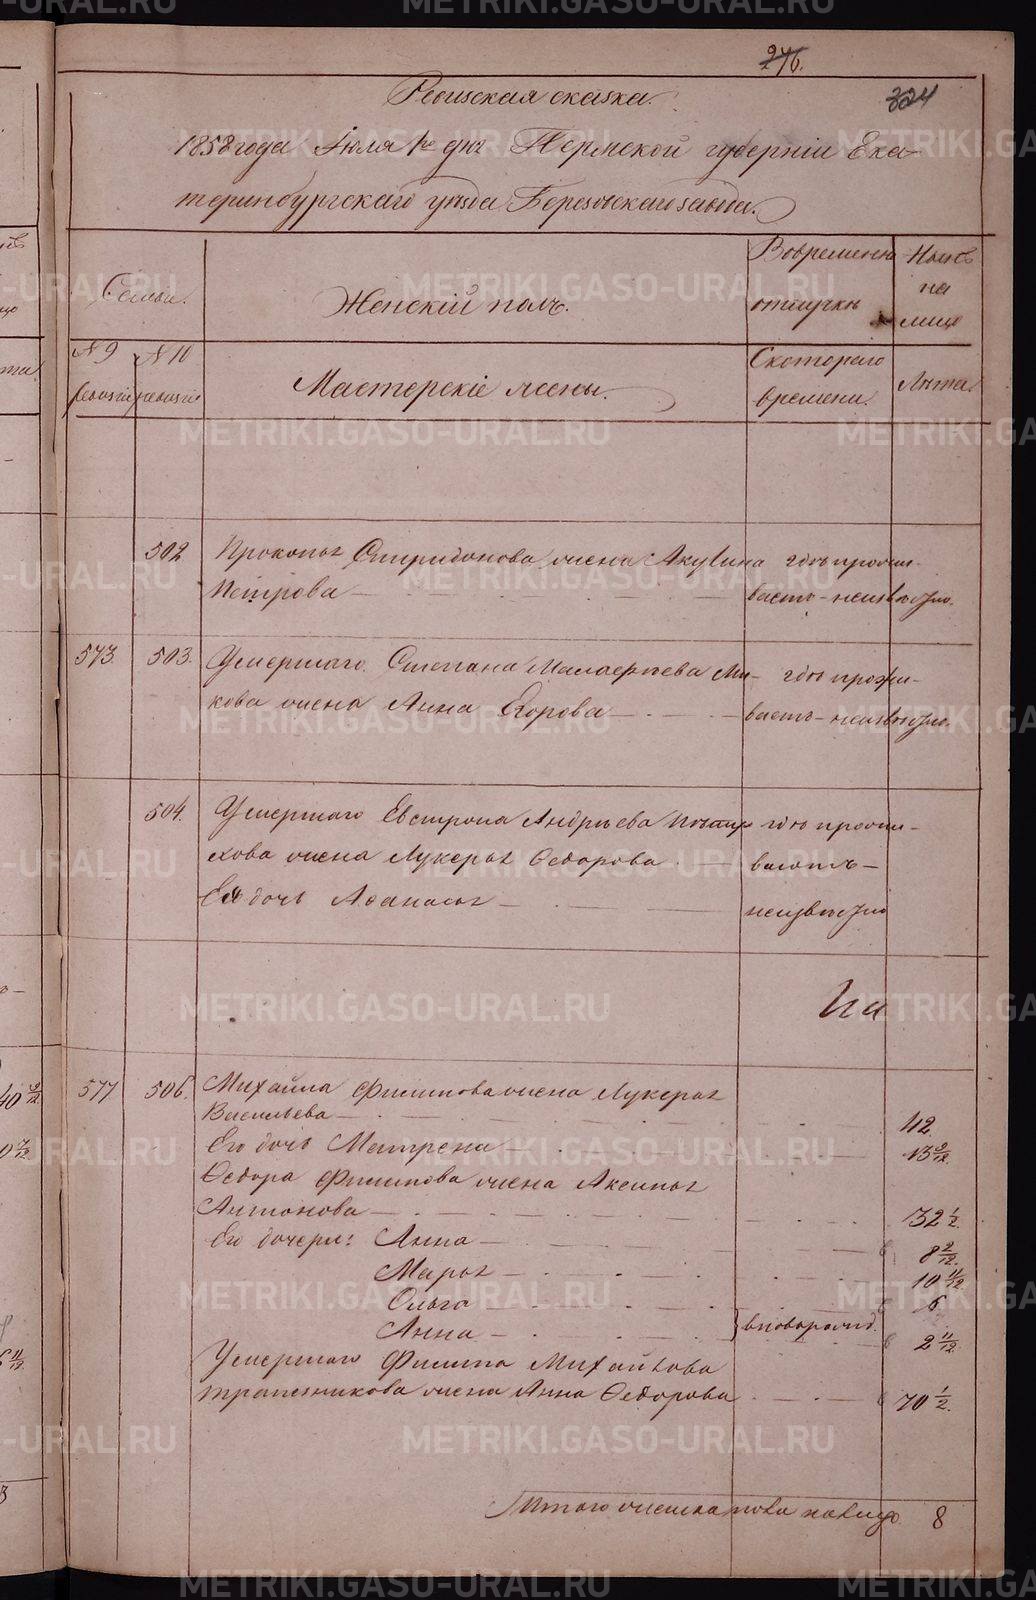 246.
324
Ревизская сказка.
1858 года Іюля 1го дня Пермской губерніи Ека-
теринбургскаго уѣзда Березовскаго завода.
Семьи.
Женскій полъ.
Во временной
отлучкѣ
Нынѣ
на
лицо
№ 9
ревизіи
№ 10
ревизіи
Мастерскіе жены.
Скотораго
времени.
Лѣта.
502. Прокопья Спиридонова жена Акулина гдѣ прожи-
Петрова — ваетъ - неизвѣстно.
573. 503. Умершаго Степана Малаѳѣева Ми- гдѣ прожи-
кова жена Анна Егорова — ваетъ - неизвѣстно.
504. Умершаго Евстропа Андрѣева гдѣ прожи-
хова жена Лукерья Ѳедорова — ваютъ -
Ея дочь Аѳанасья — неизвѣстно
577 506. Михайла Филипова жена Лукерья
Васильева — 42.
Его дочь Матрена — 13 9/12.
Ѳедора Филипова жена Аксинья
Антонова — 32 1/2.
Его дочери: Анна — 8 2/12.
Марья — 10 11/12.
Ольга — 6
Анна — вновьрожд. 2 11/12.
Умершаго Филипа Михайлова
трапезникова жена Анна Ѳедорова — 70 1/2.
Итого женска пола налицо 8
METRIKI.GASO-URAL.RU